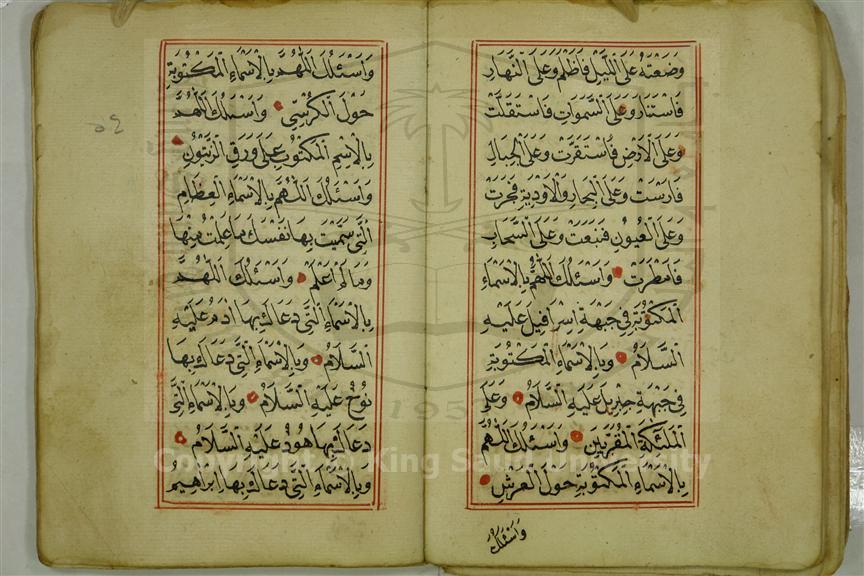 وَضَعْتَهُ عَلَى اللَّيْلِ فَاَظْلَمَ وَعَلَى النَّهَارِ
فَاسْتَنَارَ وَعَلَى السَّمٰوَاتِ فَاسْتَقَلَّتْ
وَعَلَى الْاَرْضِ فَاسْتَقَرَّتْ وَعَلَى الْجِبَالِ
فَارَسَتْ وَعَلَى الْبِحَارِ وَالْاَوْدِيَةِ فَجَرَتْ
وَعَلَى الْعُيُونِ فَنَبَعَتْ وَعَلَى السَّحَابِ
فَاَمْطَرَتْ وَاَسْئَلُكَ اللّٰهُمَّ بِالْاَسْمَاءِ
الْمَكْتُوبَةِ فِى جَبْهَةِ اِسْرَافِيلَ عَلَيْهِ
السَّلَامُ وَبِالْاَسْمَاءِ الْمَكْتُوبَةِ
فِى جَبْهَةِ جِبْرِيلَ عَلَيْهِ السَّلَامُ وَعَلَى
الْمَلٰئِكَةِ الْمُقَرَّبِينَ وَاَسْئَلُكَ اللّٰهُمَّ
بِالْاَسْمَاءِ الْمَكْتُوبَةِ حَوْلَ الْعَرْشِ
وَاَسْئَلُكَ
وَاَسْئَلُكَ اللّٰهُمَّ بِالْاَسْمَاءِ الْمَكْتُوبَةِ
حَوْلَ الْكُرْسِىِّ وَاَسْئَلُكَ اللّٰهُمَّ
بِالْاِسْمِ الْمَكْتُوبِ عَلَى وَرَقِ الزَّيْتُونِ
وَاَسْئَلُكَ اللّٰهُمَّ بِالْاَسْمَاءِ الْعِظَامِ
الَّتِى سَمَّيْتَ بِهَا نَفْسَكَ مَا عَلِمْتُ مِنْهَا
وَمَا لَمْ اَعْلَمْ وَاَسْئَلُكَ اللّٰهُمَّ
بِالْاَسْمَاءِ الَّتِى دَعَاكَ بِهَا اٰدَمُ عَلَيْهِ
السَّلَامُ وَبِالْاَسْمَاءِ الَّتِى دَعَاكَ بِهَا
نُوحٌ عَلَيْهِ السَّلَامُ وَبِالْاَسْمَاءِ الَّتِى
دَعَاكَ بِهَا هُودٌ عَلَيْهِ السَّلَامُ
وَبِالْاَسْمَاءِ الَّتِى دَعَاكَ بِهَا اِبْرَاهِيمُ
1957
Copyright © King Saud University